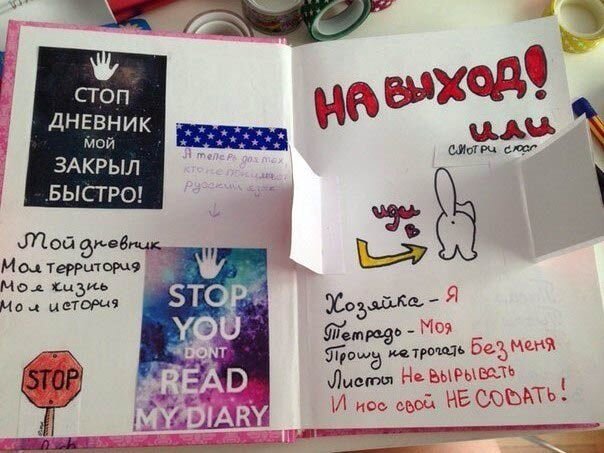 СТОП
ДНЕВНИК
МОЙ
ЗАКРЫЛ
БЫСТРО!
А теперь для тех,
кто не понимает
русский язык
Мой дневник
Моя территория
Моя жизнь
Моя история
STOP
STOP
YOU
DONT
READ
MY DIARY
НА ВЫХОД!
или
смотри сюда
иди
в
Хозяйка - Я
Тетрадь - Моя
Прошу не трогать Без меня
Листы Не вырывать
И нос свой НЕ СОВАТЬ!